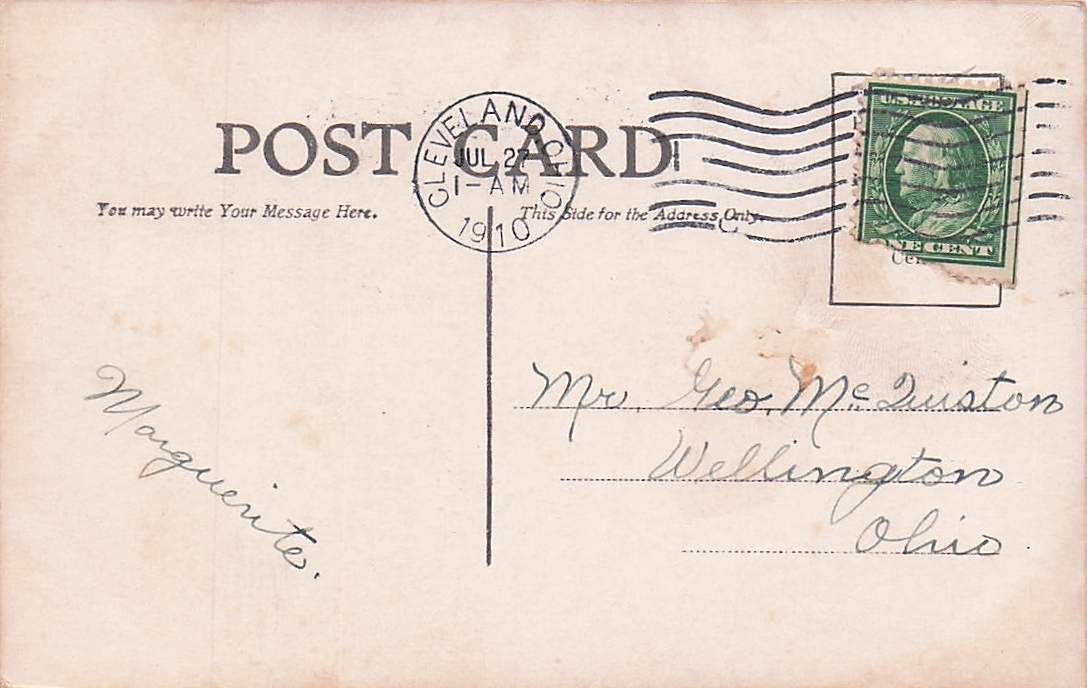 POST CARD
CLEVELAND, OHIO
JUL 27
1-AM
1910
U.S. POSTAGE
ONE CENT
You may write Your Message Here.
This Side for the Address Only.
Mr. Geo. Mc Quiston
Wellington
Ohio
Marguerite.